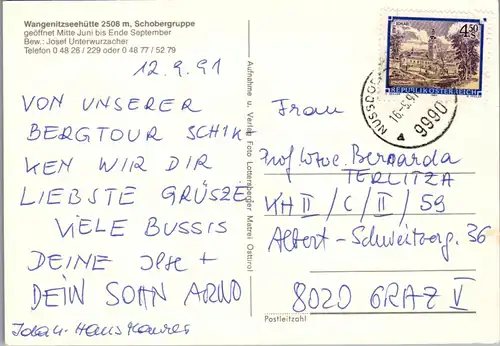 Wangenitzseehütte 2508 m, Schobergruppe
geöffnet Mitte Juni bis Ende September
Bew.: Josef Unterwurzacher
Telefon 0 48 26 / 229 oder 0 48 77 / 52 79
12.9.91
VON UNSERER
BERGTOUR SCHIK
KEN WIR DIR
LIEBSTE GRÜSZE
VIELE BUSSIS
DEINE Ilse +
DEIN SOHN ARNO
Hans
Aufnahme u. Verlag Foto Dottersberger Matrei Osttirol
4.50
REPUBLIK ÖSTERREICH
9990
a
Frau
Prof. Wwe. Bernarda
TERLITZA
KH II / C / II / 59
Albert-Schweitzerg. 36
8020 GRAZ V
Postleitzahl